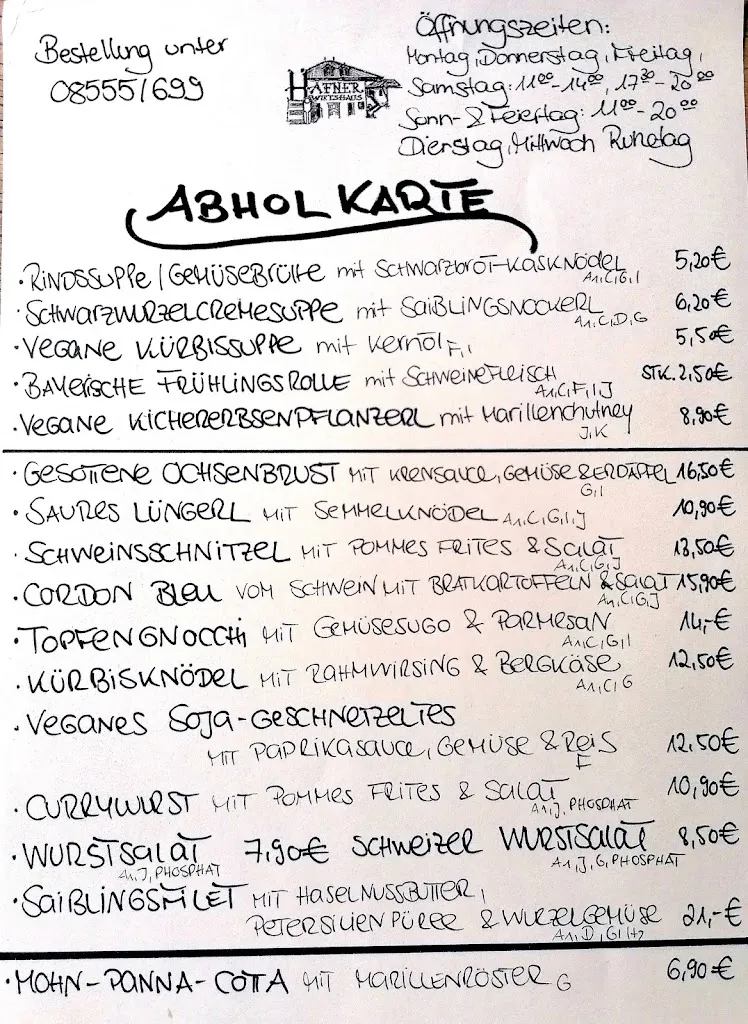 Bestellung unter
08555/699
HAFNER
WIRTSHAUS
Öffnungszeiten:
Montag, Donnerstag, Freitag,
Samstag: 11⁰⁰-14⁰⁰, 17³⁰-20⁰⁰
Sonn- & Feiertag: 11⁰⁰-20⁰⁰
Dienstag, Mittwoch Ruhetag
ABHOLKARTE
· RINDSSUPPE / GEMÜSEBRÜHE mit SCHWARZBROT-KASKNÖDEL 5,20€
A1,C,G,I
· SCHWARZWURZELCREMESUPPE mit SAIBLINGSNOCKERL 6,20€
A1,C,D,G
· VEGANE KÜRBISSUPPE mit Kernöl F,I 5,50€
· BAYERISCHE FRÜHLINGSROLLE mit SCHWEINEFLEISCH STK. 2,50€
A1,C,F,I,J
· VEGANE KICHERERBSENPFLANZERL mit Marillenchutney 8,90€
J,K
· GESOTTENE OCHSENBRUST MIT KRENSAUCE, GEMÜSE & ERDÄPFEL 16,50€
G,I
· SAURES LÜNGERL MIT SEMMELKNÖDEL A1,C,G,I,J 10,90€
· SCHWEINSSCHNITZEL MIT POMMES FRITES & SALAT 13,50€
A1,C,G,J
· CORDON BLEU VOM SCHWEIN MIT BRATKARTOFFELN & SALAT 15,90€
A1,C,G,J
· TOPFENGNOCCHI MIT GEMÜSESUGO & PARMESAN 14,-€
A1,C,G,I
· KÜRBISKNÖDEL MIT RAHMWIRSING & BERGKÄSE 12,50€
A1,C,G
· VEGANES SOJA-GESCHNETZELTES
MIT PAPRIKASAUCE, GEMÜSE & REIS 12,50€
F
· CURRYWURST MIT POMMES FRITES & SALAT 10,90€
A1,J,PHOSPHAT
· WURSTSALAT 7,90€ SCHWEIZER WURSTSALAT 8,50€
A1,J,PHOSPHAT A1,J,G,PHOSPHAT
· SAIBLINGSFILET MIT HASELNUSSBUTTER,
PETERSILIENPÜREE & WURZELGEMÜSE 21,-€
A1,D,G,I,H2
· MOHN-PANNA-COTTA MIT MARILLENRÖSTER G 6,90€